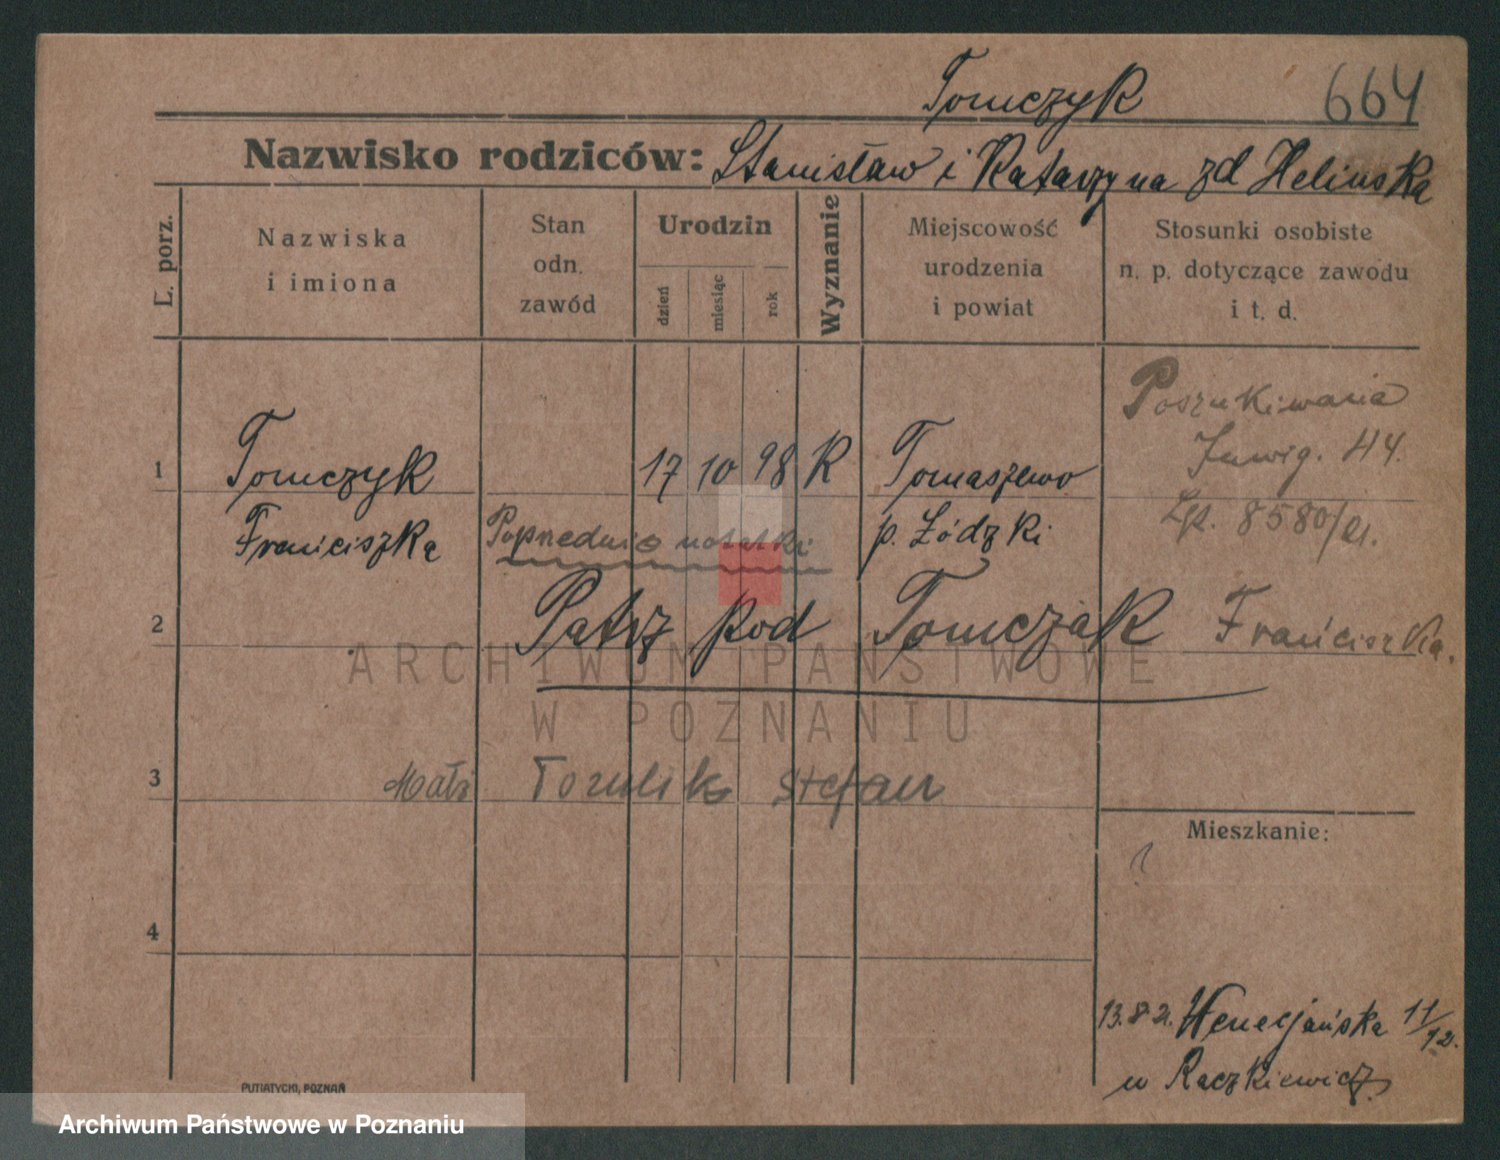 Tomczyk 664
Nazwisko rodziców: Stanisław i Katarzyna zd Helinska
L. porz.
Nazwiska
i imiona
Stan
odn.
zawód
Urodzin
dzień
miesiąc
rok
Wyznanie
Miejscowość
urodzenia
i powiat
Stosunki osobiste
n. p. dotyczące zawodu
i t. d.
Poszukiwania
44.
1 Tomczyk 17 10 98 R Tomaszewo
Lp. 8580/21.
Franciszka Poprzednio notatki p. Łódzki
2 Patrz pod Tomczak Franciszka.
ARCHIWUM PAŃSTWOWE
W POZNANIU
3 Stefan
Mieszkanie:
?
4
13.8 21. Wenecjańska 11/12.
u Raczkiewicz
PUTIATYCKI, POZNAŃ
Archiwum Państwowe w Poznaniu